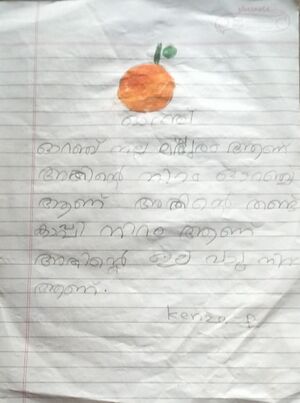 ഓറഞ്ച്
ഓറഞ്ച് നല്ല മധുരം ആണ്
അതിന്റെ നിറം ഓറഞ്ചു
ആണ് അതിന്റെ തണ്ട്
കാപ്പി നിറം ആണ്
അതിന്റെ ഇല പച്ച നിറ
ആണ്.
kenza. P